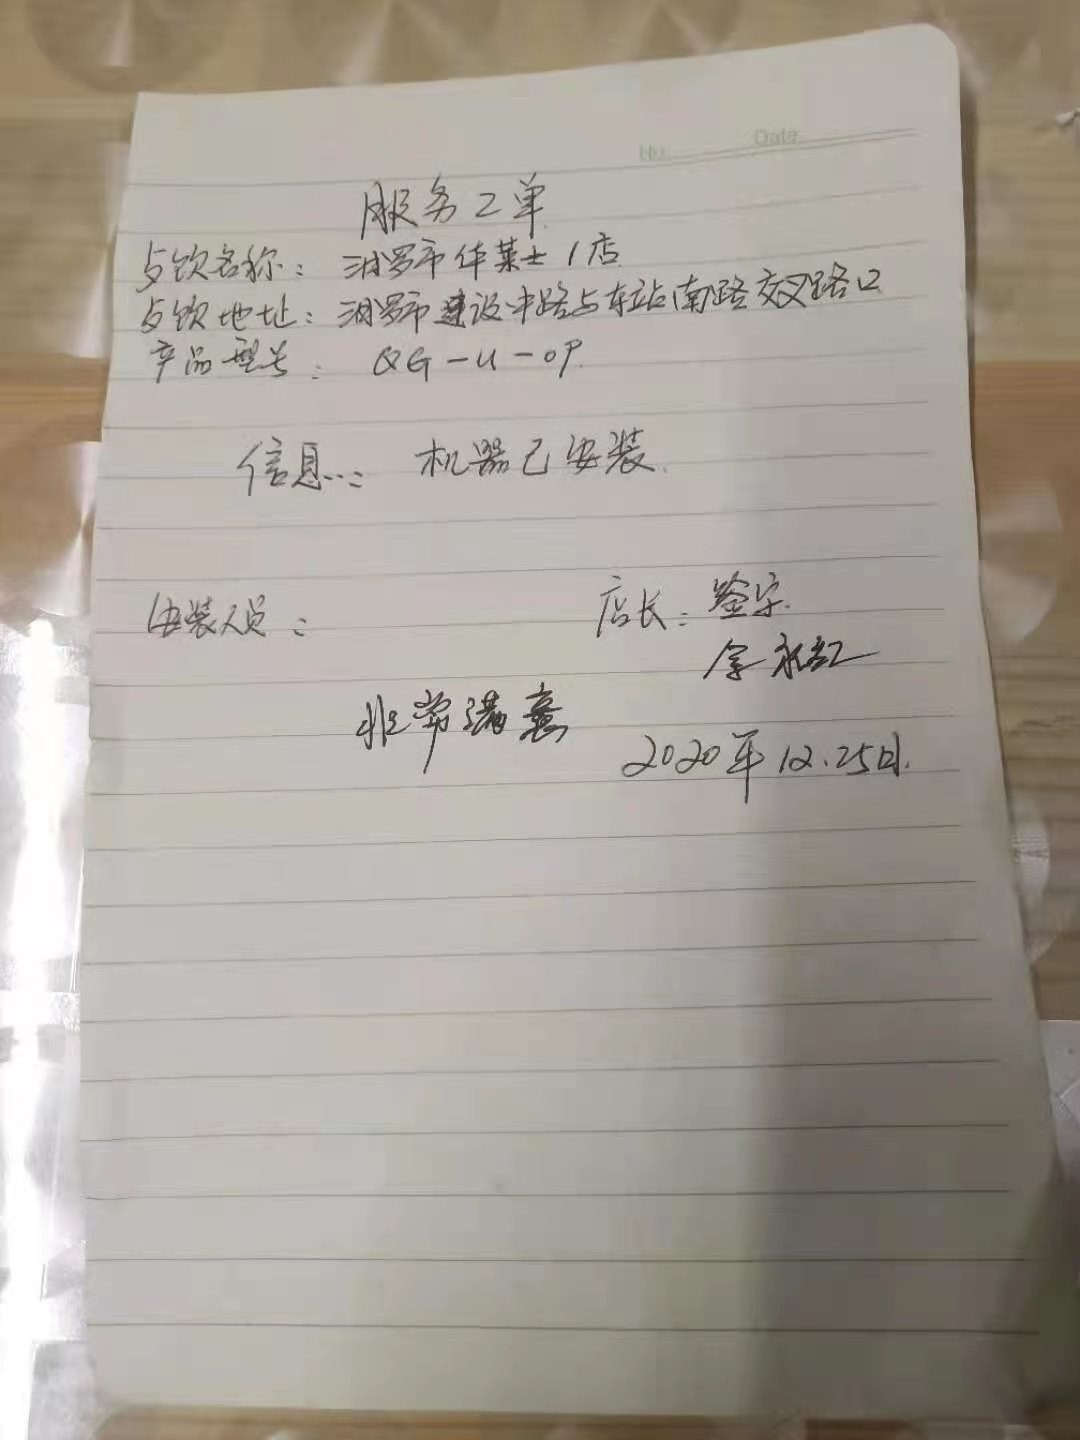 No. Date
服务工单
与饮名称：汨罗市华莱士1店
与饮地址：汨罗市建设中路与车站南路交叉路口
产品型号：QG-U-OP
信息：机器已安装.
安装人员：
店长：签字.
非常满意
2020年12.25日.